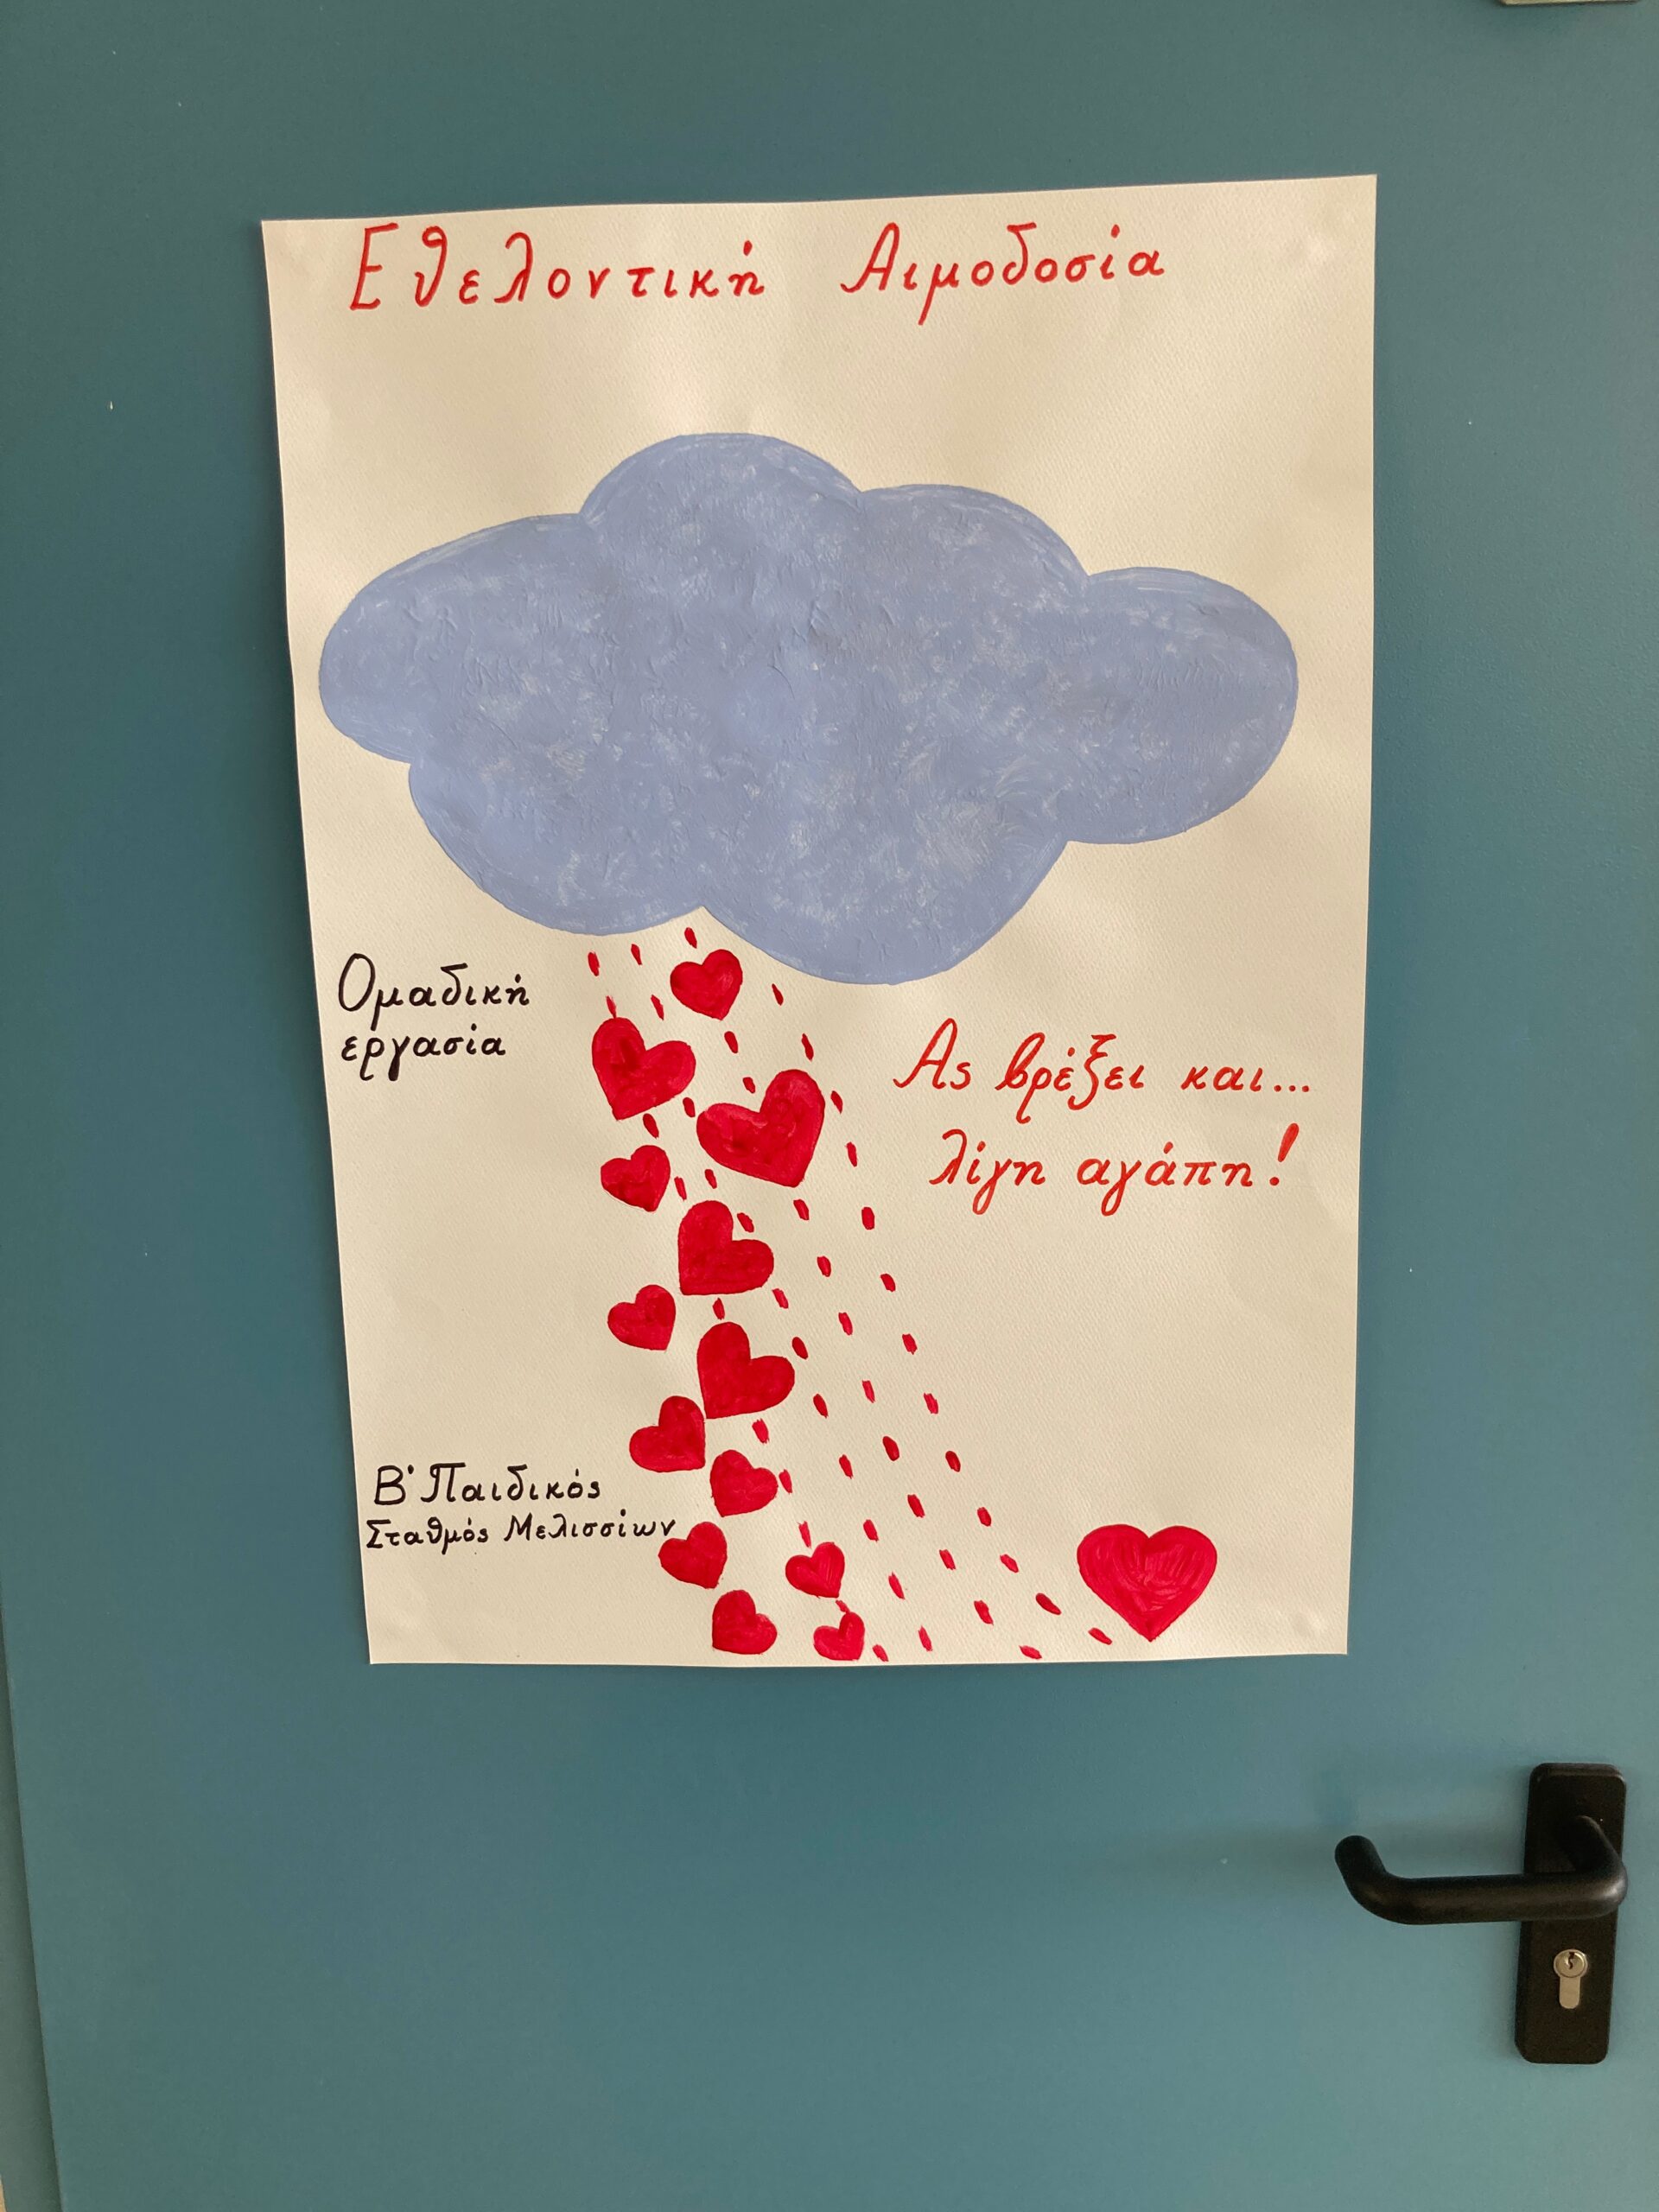 Εθελοντική Αιμοδοσία
Ομαδική
εργασία
Ας βρέξει και...
λίγη αγάπη!
Β' Παιδικός
Σταθμός Μελισσίων